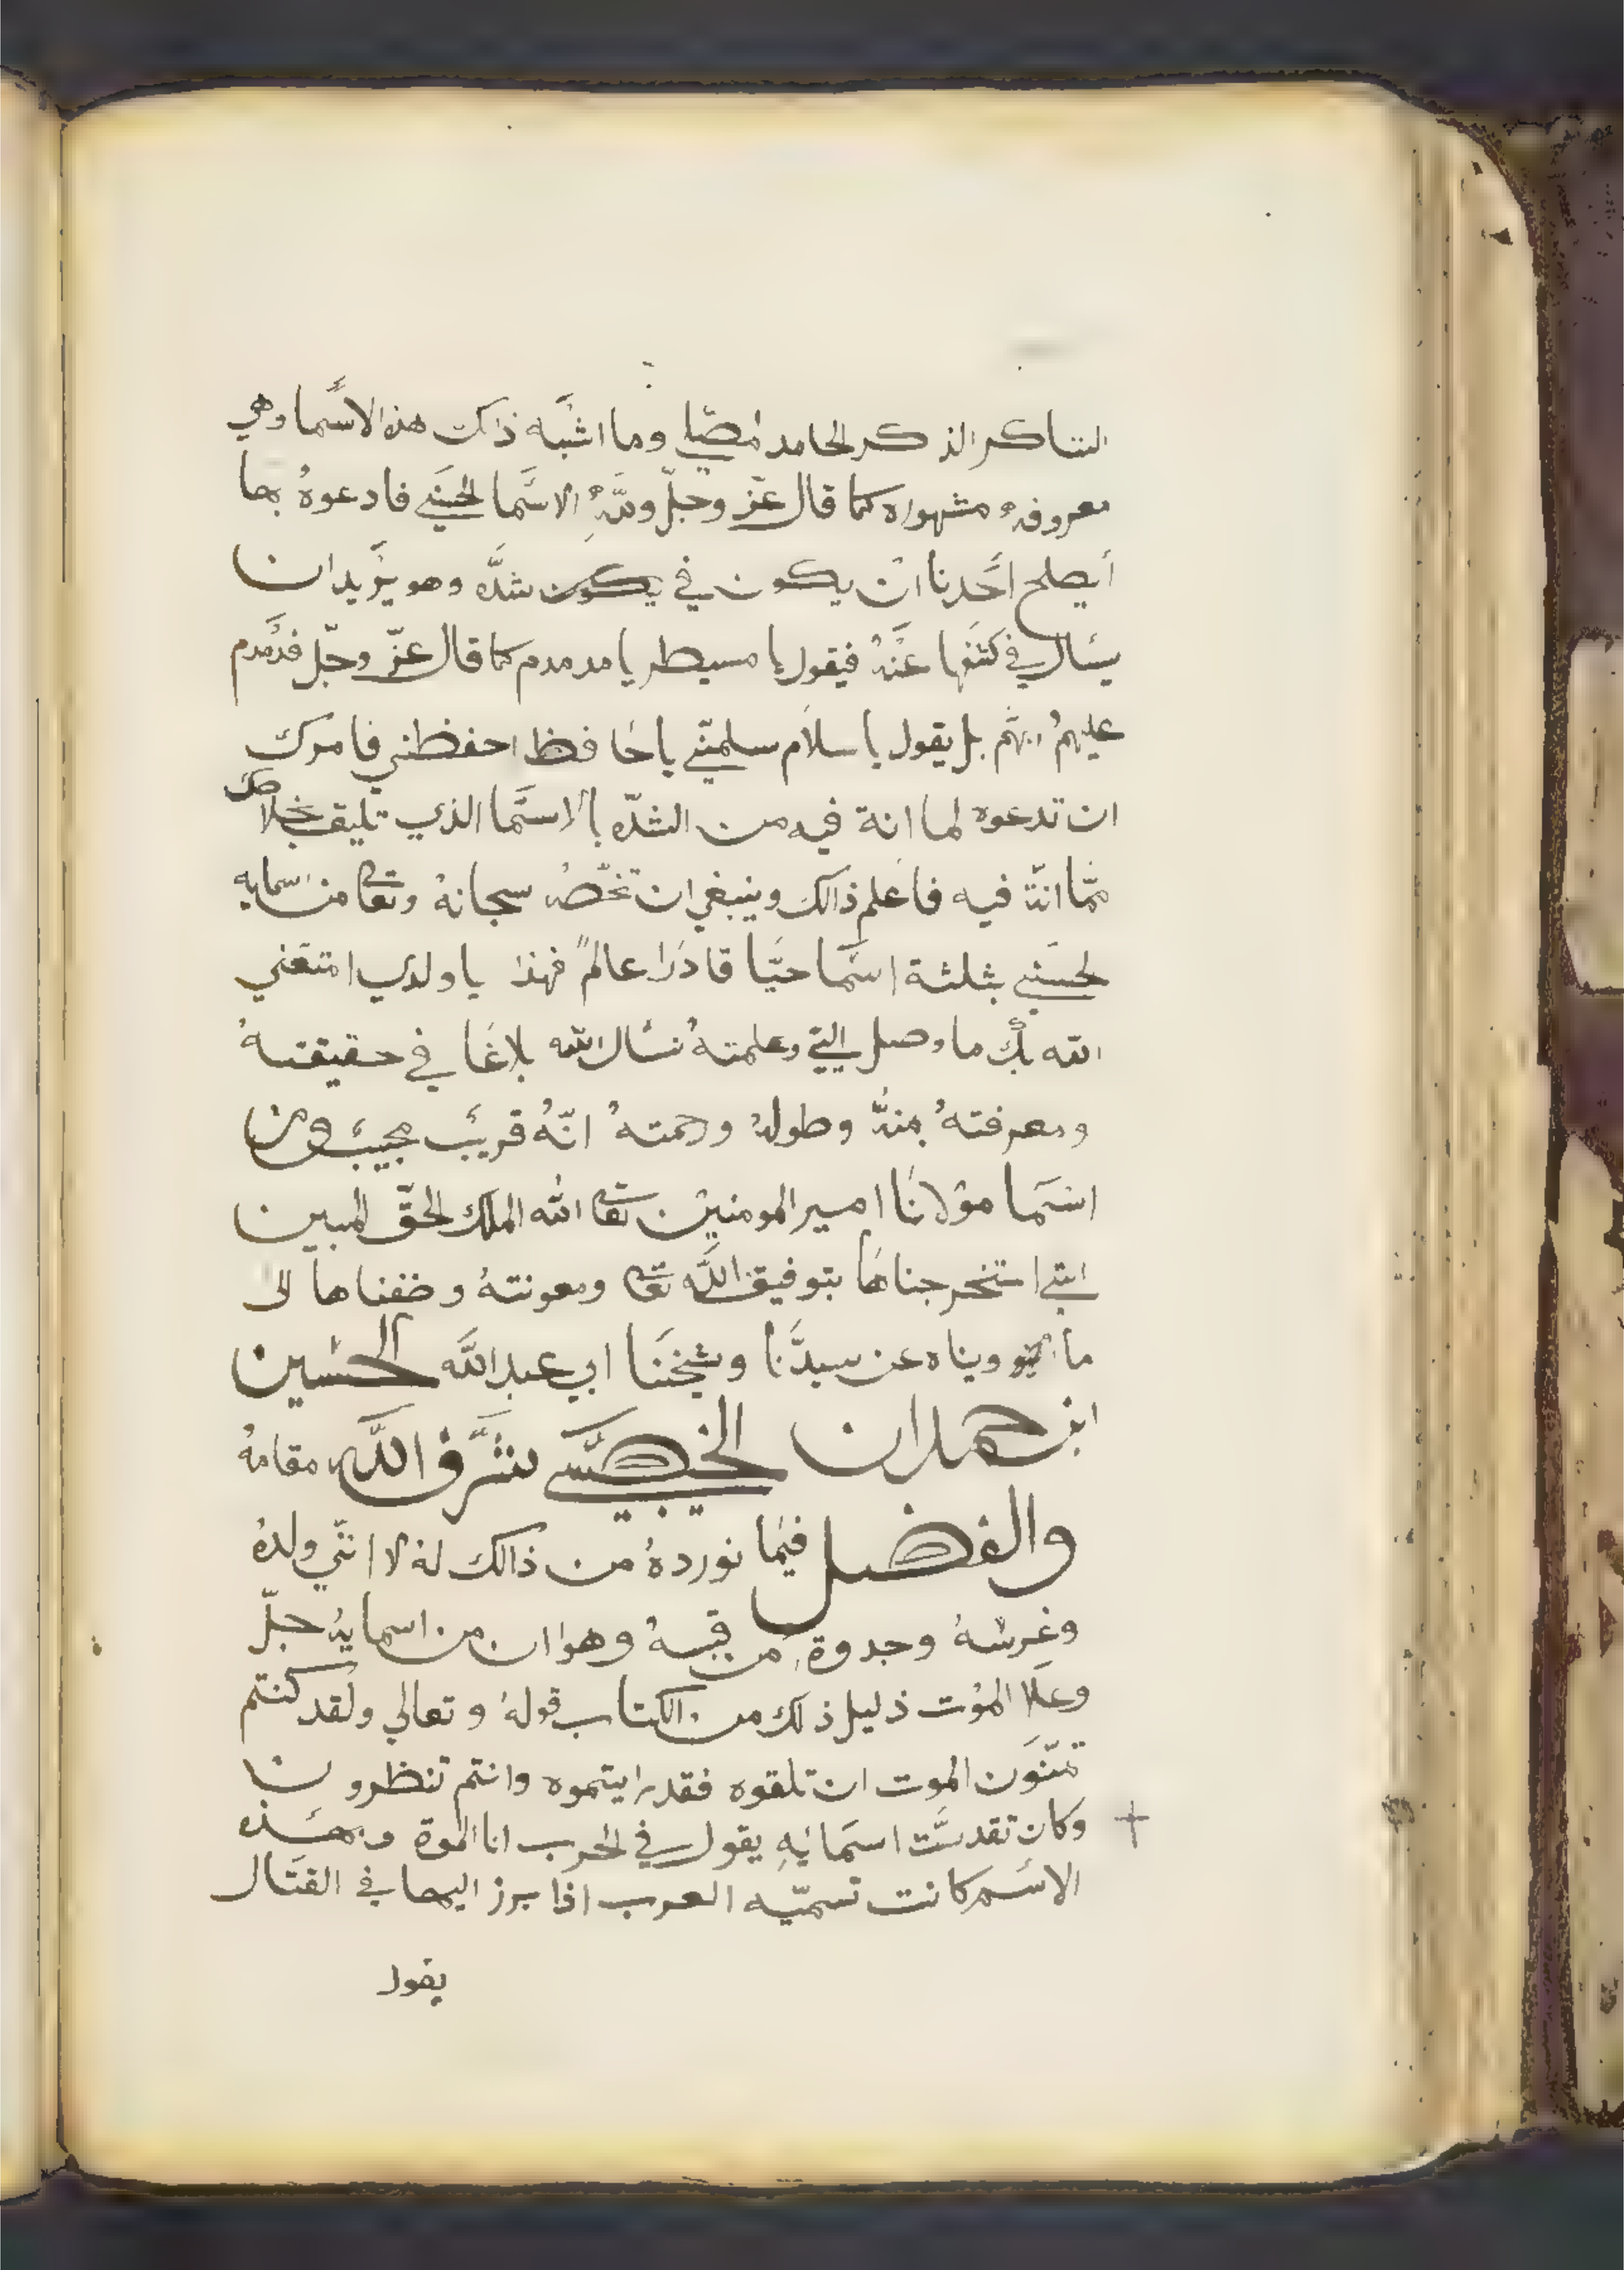 الشاكر الذكر الحامد لمصلي وما اشبه ذالك هذه الاسما وهي
معروفه مشهواره كما قال عز وجل ولله الاسما الحسني فادعوه بها
أيصلح احدنا ان يكون في يكون شده وهو يريد ان
يسال في كشفها عنه فيقول يا مسيطر يا مدمدم كما قال عز وجل فدمدم
عليهم ربهم بل يقول يا سلام سلمني يا حافظ احفظني فامرك
ان تدعوه لما انة فيه من الشده بالاسما الذي تليق بخلاصك
مما انت فيه فاعلم ذالك وينبغي ان تخصه سبحانه وتعا من اسمايه
لحسني بثلثة اسما حيا قادرا عالم فهذا يا ولدي امتعني
الله بك ما وصل الي وعلمته نسال الله بلاغا في حقيقته
ومعرفته بمنه وطوله ورحمته انه قريب مجيب ومن
اسما مولانا امير المومنين تعا الله الملك الحق المبين
التي استخرجناها بتوفيق الله تعا ومعونته وضفناها الى
ما رويناه عن سيدنا وشيخنا ابي عبد الله الحسين
ابن حمدان الخصيبي شرف الله مقامه
والفضل فيما نورده من ذالك له لا انني ولده
وغرسه وجدوة من قبسه وهو ان من اسمايه جل
وعلا الموت ذليل ذلك من الكتاب قوله وتعالي ولقد كنتم
تمنون الموت ان تلقوه فقد رايتموه وانتم تنظرون
وكان تقدست اسمائه يقول في الحرب انا الموة وبهذه
الاسم كانت تسميه العرب اذا برز اليها في القتال
يقول